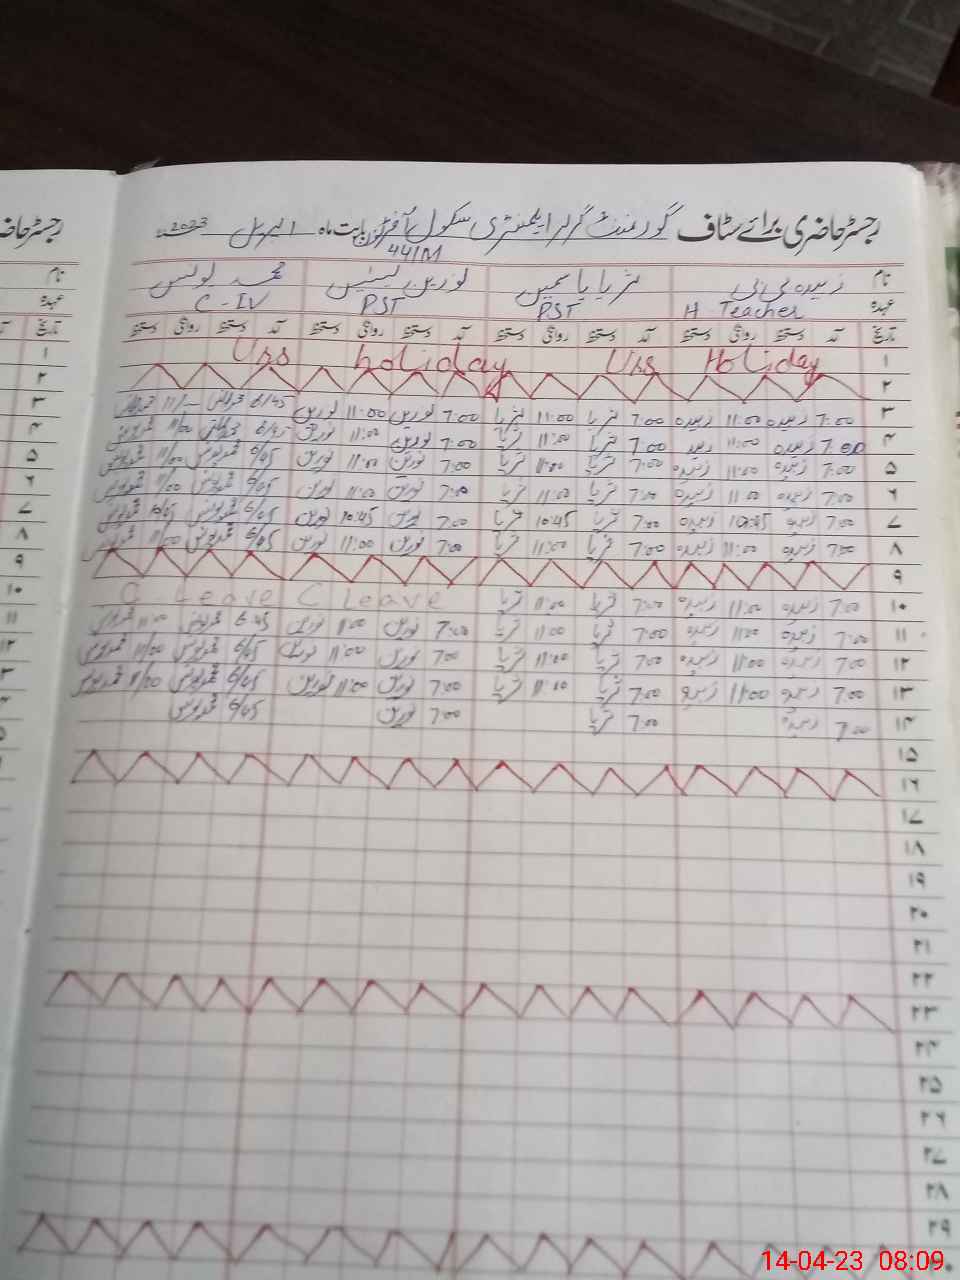 رجسٹر حاضری برائے سٹاف گورنمنٹ گرلز ایلیمنٹری سکول بابت ماہ اپریل 2023
441M
نام زبیدہ بی بی ثریا یاسمین نورین محمد یونس
عہدہ H Teacher PST PST C-IV
تاریخ آمد دستخط روانگی دستخط آمد دستخط روانگی دستخط آمد دستخط روانگی دستخط آمد دستخط روانگی دستخط
۱ Urs holiday Urs Holiday
۲
۳ 7:00 زبیدہ 11:00 زبیدہ 7:00 ثریا 11:00 ثریا 7:00 نورین 11:00 نورین 6/45 11/-
۴ 7:00 زبیدہ 11:00 زبیدہ 7:00 ثریا 11:00 ثریا 7:00 نورین 11:00 نورین 6/45 11/00
۵ 7:00 زبیدہ 11:00 زبیدہ 7:00 ثریا 11:00 ثریا 7:00 نورین 11:00 نورین 6/45 محمد یونس 11/00 محمد یونس
۶ 7:00 زبیدہ 11:00 زبیدہ 7:00 ثریا 11:00 ثریا 7:00 نورین 11:00 نورین 6/45 محمد یونس 11/00 محمد یونس
۷ 7:00 زبیدہ 10:45 زبیدہ 7:00 ثریا 10:45 ثریا 7:00 نورین 10:45 نورین 6/45 محمد یونس 10/45 محمد یونس
۸ 7:00 زبیدہ 11:00 زبیدہ 7:00 ثریا 11:00 ثریا 7:00 نورین 11:00 نورین 6/45 محمد یونس 11/00 محمد یونس
۹
۱۰ 7:00 زبیدہ 11:00 زبیدہ 7:00 ثریا 11:00 ثریا C Leave C Leave
۱۱ 7:00 زبیدہ 11:00 زبیدہ 7:00 ثریا 11:00 ثریا 7:00 نورین 11:00 نورین 6:45 محمد یونس 11:00
۱۲ 7:00 زبیدہ 11:00 زبیدہ 7:00 ثریا 11:00 ثریا 7:00 نورین 11:00 نورین 6/45 محمد یونس 11/00 محمد یونس
۱۳ 7:00 زبیدہ 11:00 زبیدہ 7:00 ثریا 11:00 ثریا 7:00 نورین 11:00 نورین 6/45 محمد یونس 11/00 محمد یونس
۱۴ 7:00 زبیدہ 7:00 ثریا 7:00 نورین 6/45 محمد یونس
۱۵
۱۶
۱۷
۱۸
۱۹
۲۰
۲۱
۲۲
۲۳
۲۴
۲۵
۲۶
۲۷
۲۸
۲۹
14-04-23 08:09